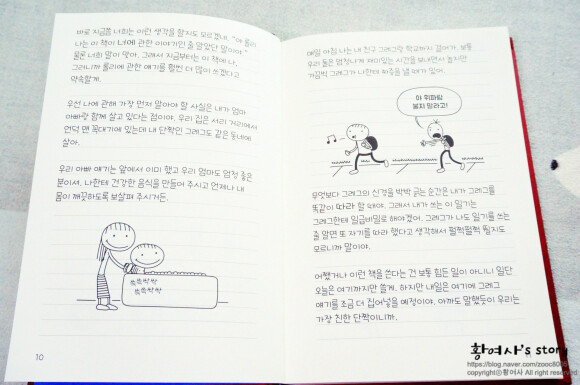 바로 지금쯤 너희는 이런 생각을 할지도 모르겠네. "야 롤리
나는 이 책이 너에 관한 이야기인 줄 알았단 말이야."
물론 너희 말이 맞아. 그래서 지금부터는 이 책에 나,
그러니까 롤리에 관한 얘기를 훨씬 더 많이 쓰겠다고
약속할게.
우선 나에 관해 가장 먼저 알아야 할 사실은 내가 엄마
아빠랑 함께 살고 있다는 점이야. 우리 집은 서리 거리에서
언덕 맨 꼭대기에 있는데 내 단짝인 그레그도 같은 동네에
살아.
우리 아빠 얘기는 앞에서 이미 했고 우리 엄마도 엄청 좋은
분이셔. 나한테 건강한 음식을 만들어 주시고 언제나 내
몸이 깨끗하도록 보살펴 주시거든.
쓱쓱싹싹
쓱쓱싹싹
10
매일 아침 나는 내 친구 그레그랑 학교까지 걸어가. 보통
우리 둘은 엄청나게 재미있는 시간을 보내면서 놀지만
가끔씩 그레그가 나한테 짜증을 낼 때가 있어.
야 휘파람
불지 말라고!
무엇보다 그레그의 신경을 박박 긁는 순간은 내가 그레그를
똑같이 따라 할 때야. 그래서 내가 쓰는 이 일기는
그레그한테 일급비밀로 해야겠어. 그레그가 나도 일기를 쓰는
줄 알면 또 자기를 따라 했다고 생각해서 펄쩍펄쩍 뛸지도
모르니까 말이야.
어쨌거나 이런 책을 쓴다는 건 보통 힘든 일이 아니니 일단
오늘은 여기까지만 쓸게. 하지만 내일은 여기에 그레그
얘기를 조금 더 집어넣을 예정이야. 아까도 말했듯이 우리는
가장 친한 단짝이니까.
황여사's story
copyright©황여사 All right reserved